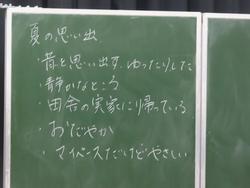 夏の思い出
・昔を思い出す ゆったりした
・静かなところ
・田舎の実家に帰っている
・おだやか
・マイペースだけどやさしい